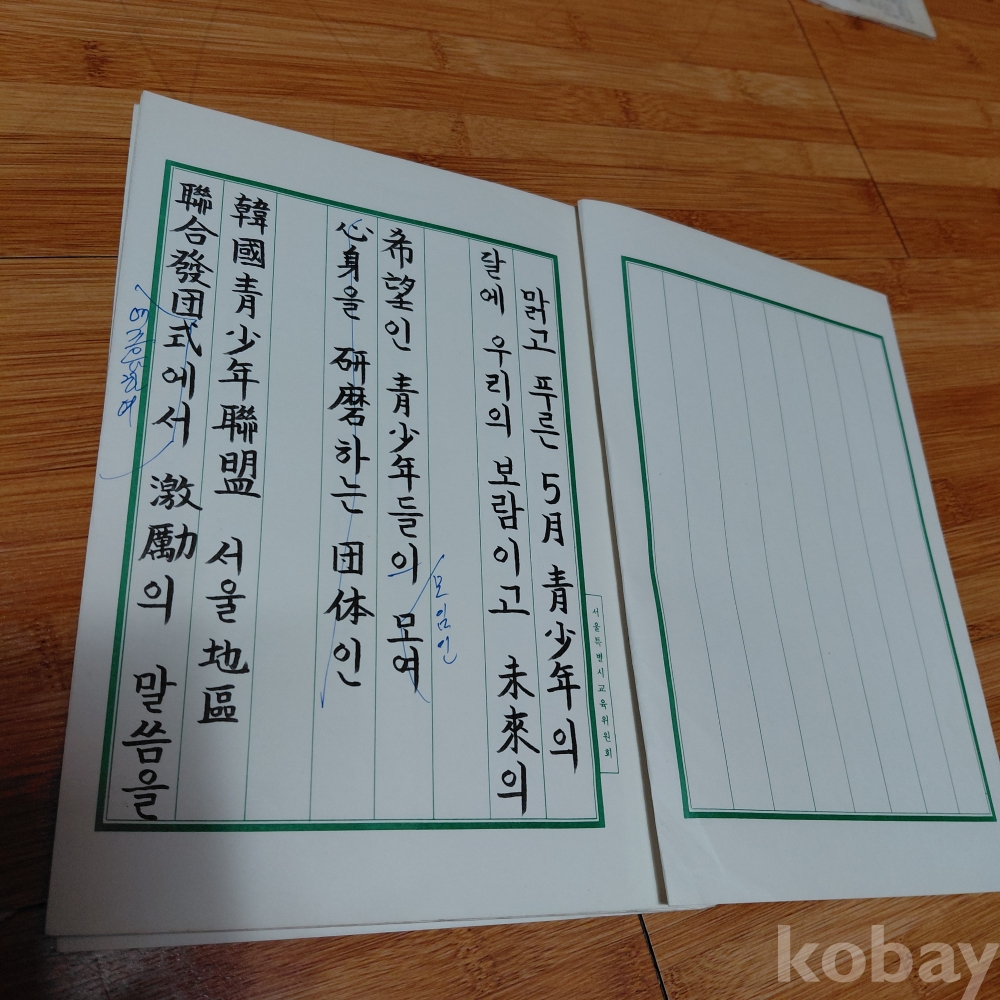 맑고 푸른 5月 青少年의
달에 우리의 보람이고 未來의
希望인 青少年들의 모여
모임인
心身을 研磨하는 団体인
韓國青少年聯盟 서울地區
聯合發団式에서 激勵의 말씀을
서울특별시교육위원회
kobay